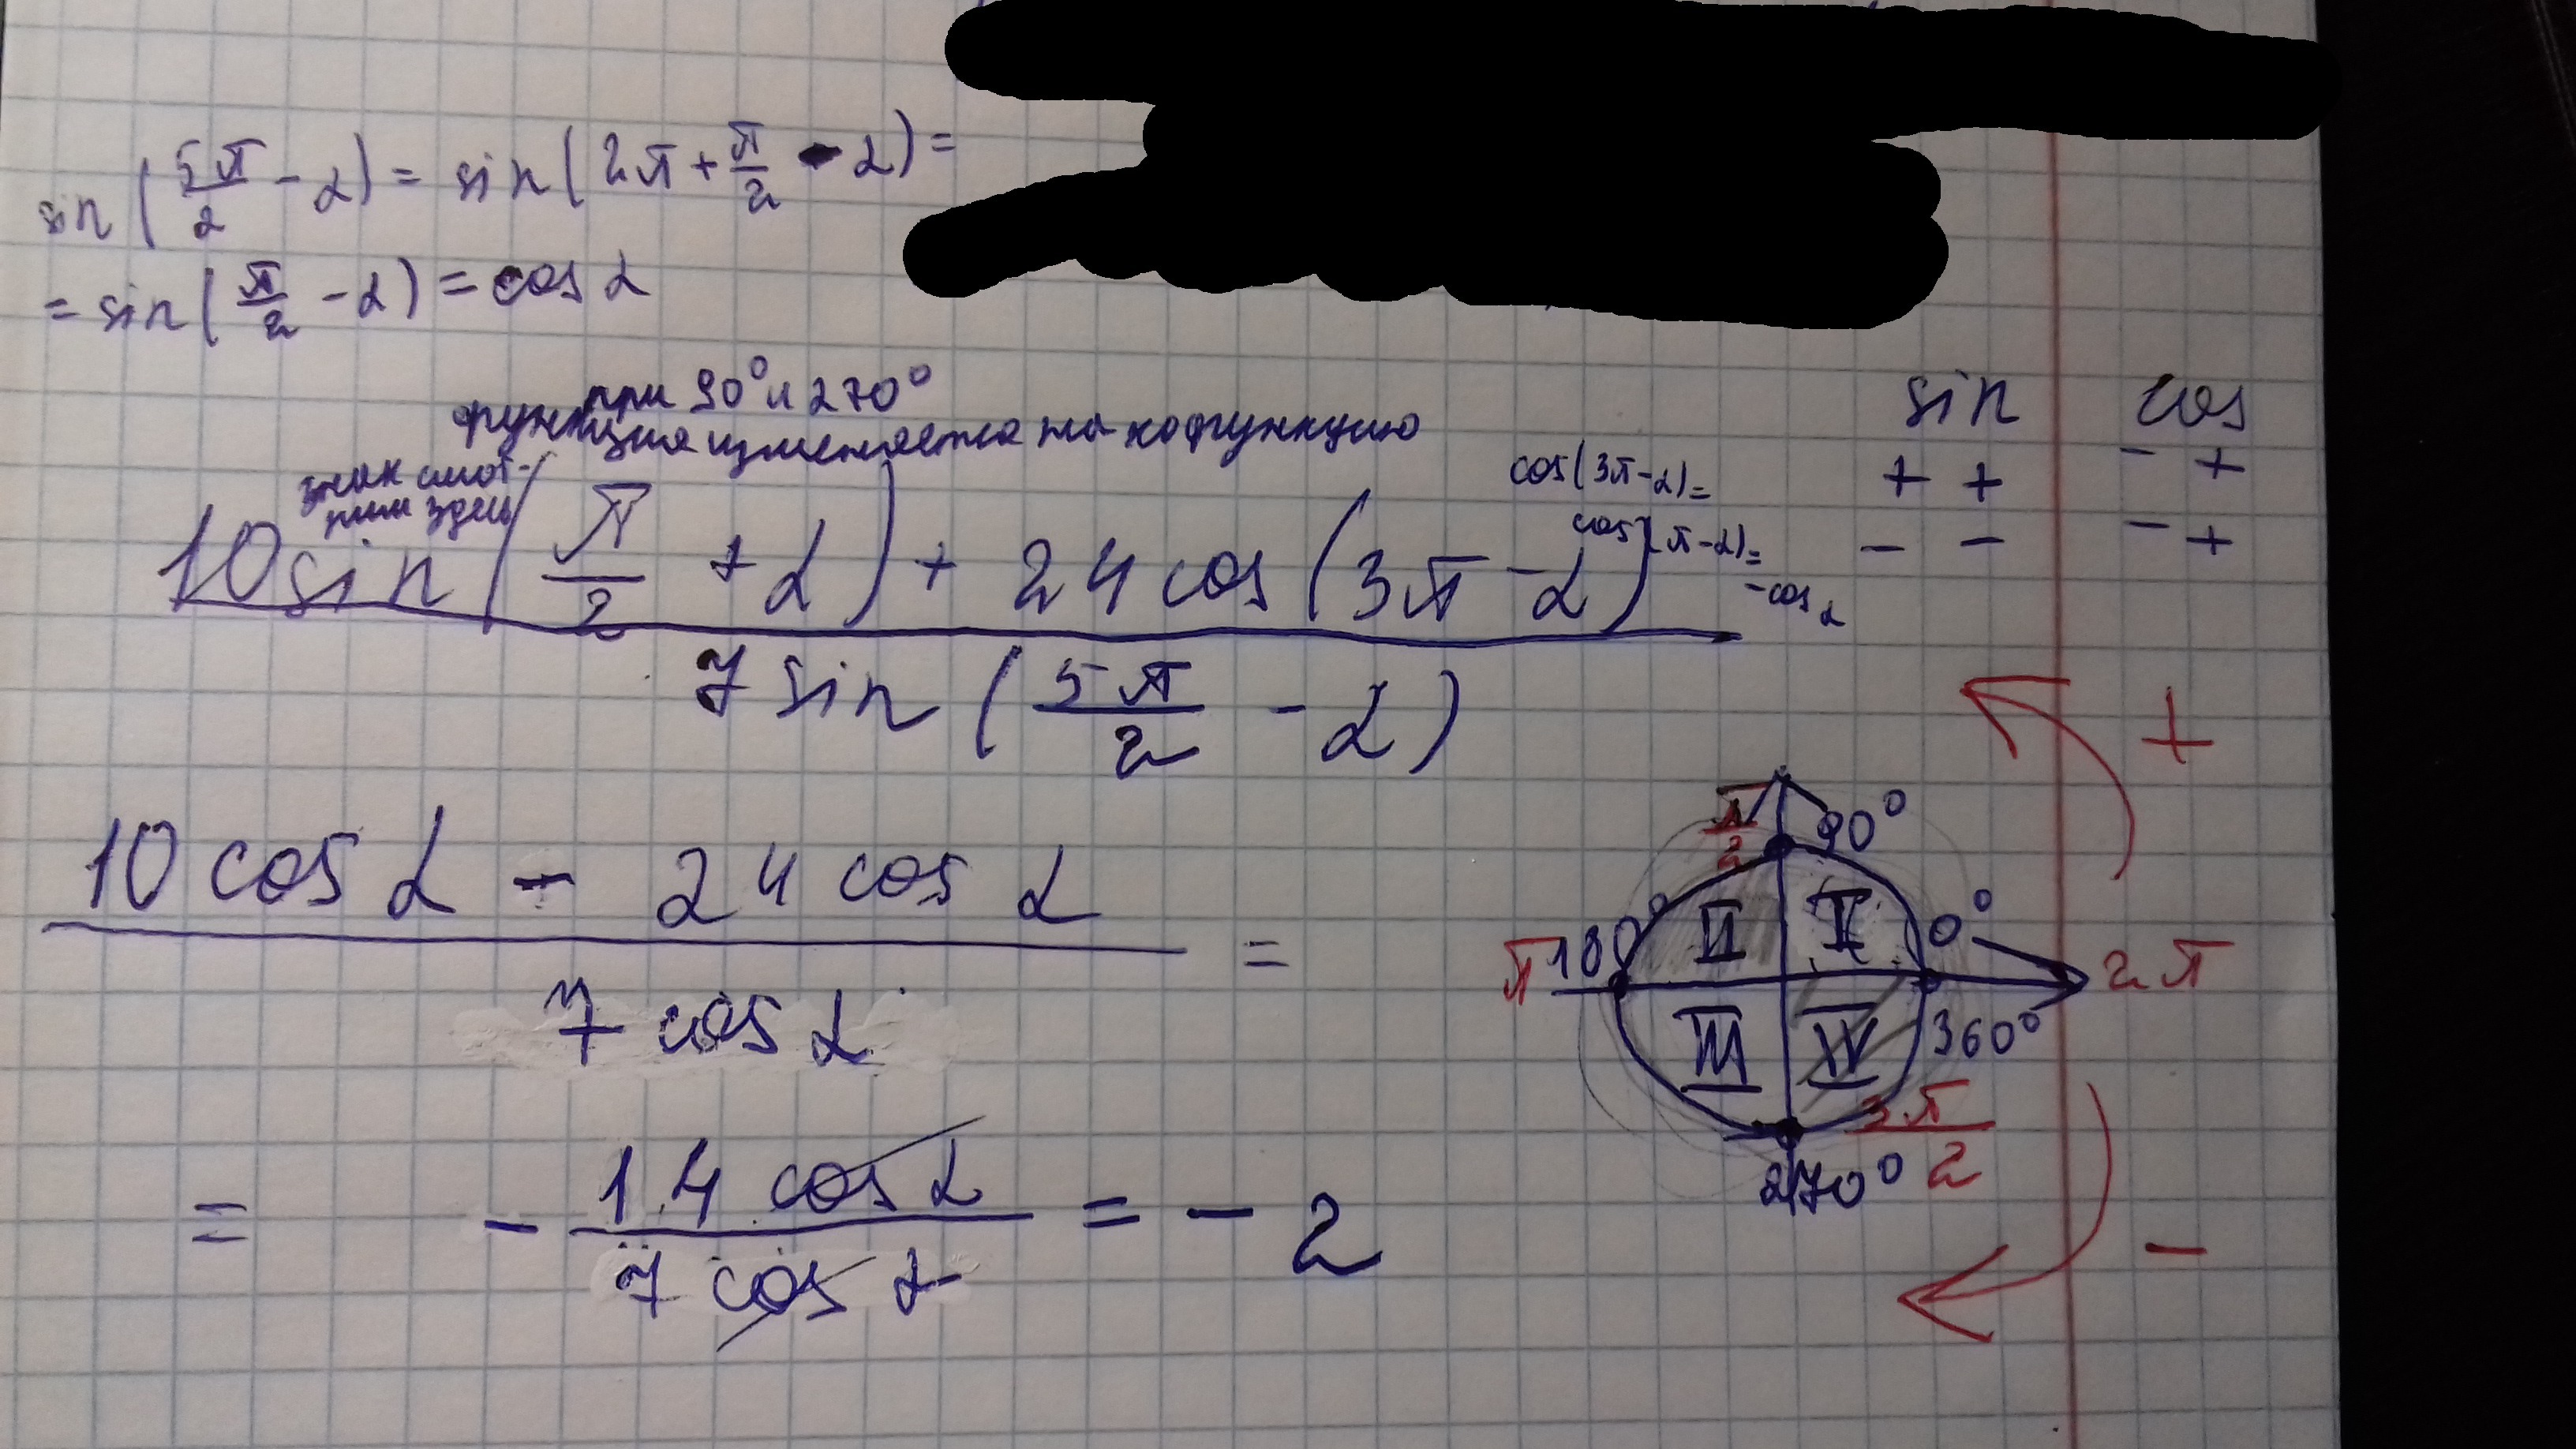 sin(5π/2 - α) = sin(2π + π/2 - α) =
= sin(π/2 - α) = cos α
при 90° и 270°
функция изменяется на кофункцию
знак смот-
рим здесь
sin cos
+ + - +
- - - +
cos(3π-α)=
cos(π-α)=
-cos α
10 sin(π/2 + α) + 24 cos(3π - α)
7 sin(5π/2 - α)
10 cos α - 24 cos α
=
7 cos α
= - 14 cos α / 7 cos α = - 2
+
π/2 90°
II I
π 180° 0° 2π
III IV 360°
3π/2
270°
-